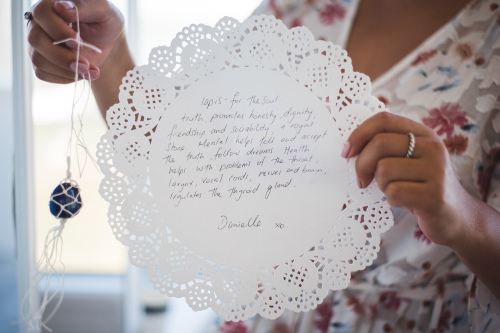 lapis - for the soul
truth, promotes honesty, dignity,
friendship and sociability. a royal
stone. Mental helps tell and accept
the truth, follow dreams. Health
helps with problems of the throat,
larynx, vocal cords, nerves and brain,
regulates the thyroid gland.
Danielle xo